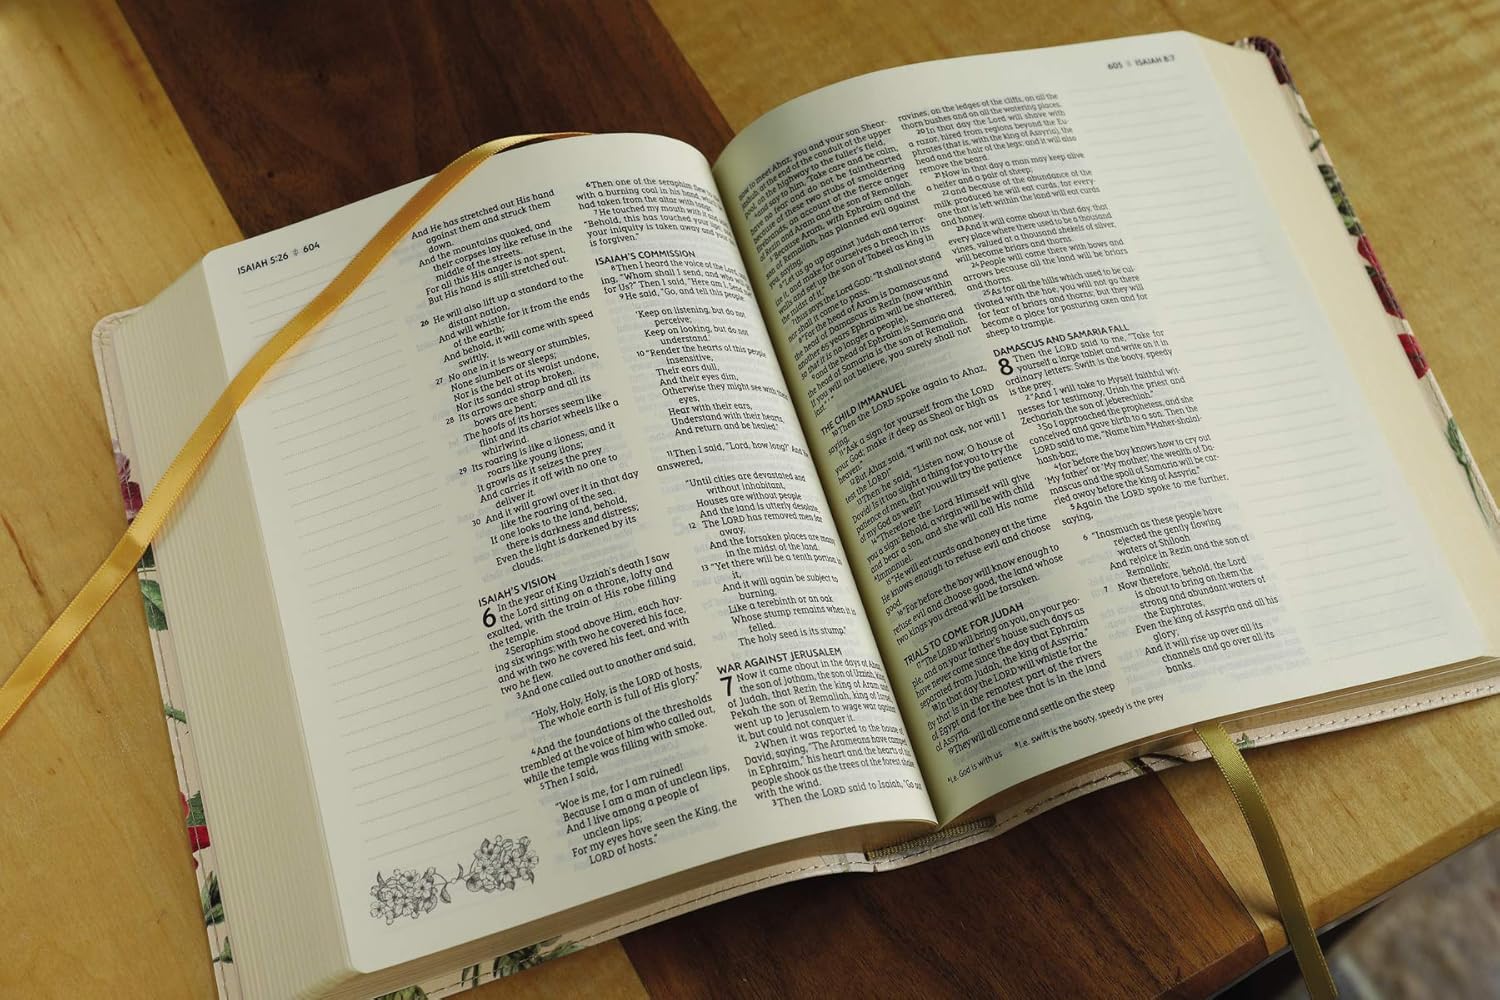 ISAIAH 5:26 604
And He has stretched out His hand
against them and struck them
down.
And the mountains quaked, and
their corpses lay like refuse in the
middle of the streets.
For all this His anger is not spent,
But His hand is still stretched out.
26 He will also lift up a standard to the
distant nation,
And will whistle for it from the ends
of the earth;
And behold, it will come with speed
swiftly.
27 No one in it is weary or stumbles,
None slumbers or sleeps;
Nor is the belt at its waist undone,
Nor its sandal strap broken.
28 Its arrows are sharp and all its
bows are bent;
The hoofs of its horses seem like
flint and its chariot wheels like a
whirlwind.
29 Its roaring is like a lioness, and it
roars like young lions;
It growls as it seizes the prey
And carries it off with no one to
deliver it.
30 And it will growl over it in that day
like the roaring of the sea.
If one looks to the land, behold,
there is darkness and distress;
Even the light is darkened by its
clouds.
ISAIAH'S VISION
6 In the year of King Uzziah's death I saw
the Lord sitting on a throne, lofty and
exalted, with the train of His robe filling
the temple.
2 Seraphim stood above Him, each hav-
ing six wings: with two he covered his face,
and with two he covered his feet, and with
two he flew.
3 And one called out to another and said,
"Holy, Holy, Holy, is the LORD of hosts,
The whole earth is full of His glory."
4 And the foundations of the thresholds
trembled at the voice of him who called out,
while the temple was filling with smoke.
5 Then I said,
"Woe is me, for I am ruined!
Because I am a man of unclean lips,
And I live among a people of
unclean lips;
For my eyes have seen the King, the
LORD of hosts."
6 Then one of the seraphim flew
with a burning coal in his hand, which
had taken from the altar with tongs.
7 He touched my mouth with it and
"Behold, this has touched your lips; and
your iniquity is taken away and your
is forgiven."
ISAIAH'S COMMISSION
8 Then I heard the voice of the Lord,
ing, "Whom shall I send, and who will go
for Us?" Then I said, "Here am I. Send
9 He said, "Go, and tell this people:
'Keep on listening, but do not
perceive;
Keep on looking, but do not
understand.'
10 "Render the hearts of this people
insensitive,
Their ears dull,
And their eyes dim,
Otherwise they might see with their
eyes,
Hear with their ears,
Understand with their hearts,
And return and be healed."
11 Then I said, "Lord, how long?" And He
answered,
"Until cities are devastated and
without inhabitant,
Houses are without people
And the land is utterly desolate,
12 The LORD has removed men far
away,
And the forsaken places are many
in the midst of the land.
13 "Yet there will be a tenth portion in
it,
And it will again be subject to
burning,
Like a terebinth or an oak
Whose stump remains when it is
felled.
The holy seed is its stump."
WAR AGAINST JERUSALEM
7 Now it came about in the days of Ahaz,
the son of Jotham, the son of Uzziah, king
of Judah, that Rezin the king of Aram and
Pekah the son of Remaliah, king of Israel,
went up to Jerusalem to wage war against
it, but could not conquer it.
2 When it was reported to the house of
David, saying, "The Arameans have camped
in Ephraim," his heart and the hearts of his
people shook as the trees of the forest shake
with the wind.
3 Then the LORD said to Isaiah, "Go out
605 ISAIAH 8:7
now to meet Ahaz, you and your son Shear-
jashub, at the end of the conduit of the upper
pool, on the highway to the fuller's field,
and say to him, 'Take care and be calm,
have no fear and do not be fainthearted
because of these two stubs of smoldering
firebrands, on account of the fierce anger
of Rezin and Aram and the son of Remaliah.
5 Because Aram, with Ephraim and the
son of Remaliah, has planned evil against
you, saying,
6 "Let us go up against Judah and terror-
ize it, and make for ourselves a breach in its
walls and set up the son of Tabeel as king in
the midst of it,"
7 thus says the Lord GOD: "It shall not stand
nor shall it come to pass.
8 "For the head of Aram is Damascus and
the head of Damascus is Rezin (now within
another 65 years Ephraim will be shattered,
so that it is no longer a people),
9 and the head of Ephraim is Samaria and
the head of Samaria is the son of Remaliah.
If you will not believe, you surely shall not
last."'"
THE CHILD IMMANUEL
10 Then the LORD spoke again to Ahaz,
saying,
11 "Ask a sign for yourself from the LORD
your God; make it deep as Sheol or high as
heaven."
12 But Ahaz said, "I will not ask, nor will I
test the LORD!"
13 Then he said, "Listen now, O house of
David! Is it too slight a thing for you to try the
patience of men, that you will try the patience
of my God as well?
14 "Therefore the Lord Himself will give
you a sign: Behold, a virgin will be with child
and bear a son, and she will call His name
a Immanuel.
15 "He will eat curds and honey at the time
He knows enough to refuse evil and choose
good.
16 "For before the boy will know enough to
refuse evil and choose good, the land whose
two kings you dread will be forsaken.
TRIALS TO COME FOR JUDAH
17 "The LORD will bring on you, on your peo-
ple, and on your father's house such days as
have never come since the day that Ephraim
separated from Judah, the king of Assyria."
18 In that day the LORD will whistle for the
fly that is in the remotest part of the rivers
of Egypt and for the bee that is in the land
of Assyria.
19 They will all come and settle on the steep
ravines, on the ledges of the cliffs, on all the
thorn bushes and on all the watering places.
20 In that day the Lord will shave with
a razor, hired from regions beyond the Eu-
phrates (that is, with the king of Assyria), the
head and the hair of the legs; and it will also
remove the beard.
21 Now in that day a man may keep alive
a heifer and a pair of sheep;
22 and because of the abundance of the
milk produced he will eat curds, for every
one that is left within the land will eat curds
and honey.
23 And it will come about in that day, that
every place where there used to be a thousand
vines, valued at a thousand shekels of silver,
will become briars and thorns.
24 People will come there with bows and
arrows because all the land will be briars
and thorns.
25 As for all the hills which used to be cul-
tivated with the hoe, you will not go there
for fear of briars and thorns; but they will
become a place for pasturing oxen and for
sheep to trample.
DAMASCUS AND SAMARIA FALL
8 Then the LORD said to me, "Take for
yourself a large tablet and write on it in
ordinary letters: Swift is the booty, speedy
is the prey.
2 "And I will take to Myself faithful wit-
nesses for testimony, Uriah the priest and
Zechariah the son of Jeberechiah."
3 So I approached the prophetess, and she
conceived and gave birth to a son. Then the
LORD said to me, "Name him b Maher-shalal-
hash-baz;
4 for before the boy knows how to cry out
'My father' or 'My mother,' the wealth of Da-
mascus and the spoil of Samaria will be car-
ried away before the king of Assyria."
5 Again the LORD spoke to me further,
saying,
6 "Inasmuch as these people have
rejected the gently flowing
waters of Shiloah
And rejoice in Rezin and the son of
Remaliah;
7 "Now therefore, behold, the Lord
is about to bring on them the
strong and abundant waters of
the Euphrates,
Even the king of Assyria and all his
glory;
And it will rise up over all its
channels and go over all its
banks.
a I.e. God is with us b I.e. swift is the booty, speedy is the prey